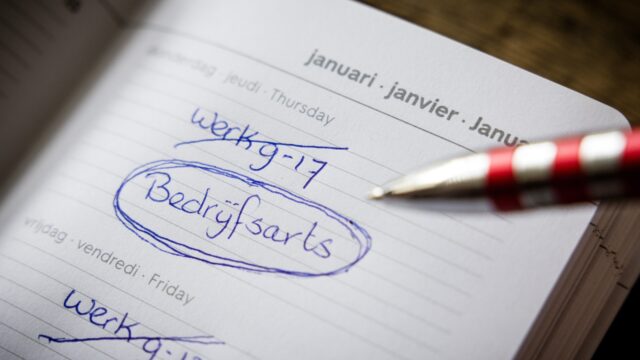 januari · janvier · Janua
donderdag · jeudi · Thursday
werk 9-17
Bedrijfsarts
vrijdag · vendredi · Friday
werk 9-17